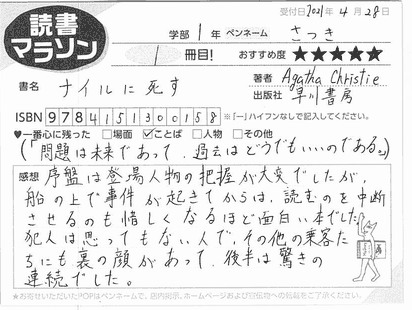 受付日 2021年 4月 28日
読書マラソン
学部 1年 ペンネーム さつき
1 冊目! おすすめ度 ★★★★★
書名 ナイルに死す
著者 Agatha Christie
出版社 早川書房
ISBN 9784151300158 ※「-」ハイフンなしで記入してください。
♥一番心に残った □場面 ☑ことば □人物 □その他
(「問題は未来であって、過去はどうでもいいのである。」)
感想 序盤は登場人物の把握が大変でしたが、
船の上で事件が起きてからは、読むのを中断
させるのも惜しくなるほど面白い本でした!
犯人は思ってもない人で、その他の乗客た
ちにも裏の顔があって、後半は驚きの
連続でした。
★お寄せいただいたPOPはペンネームで、店内掲示、ホームページおよび宣伝物への掲載をご了承ください。